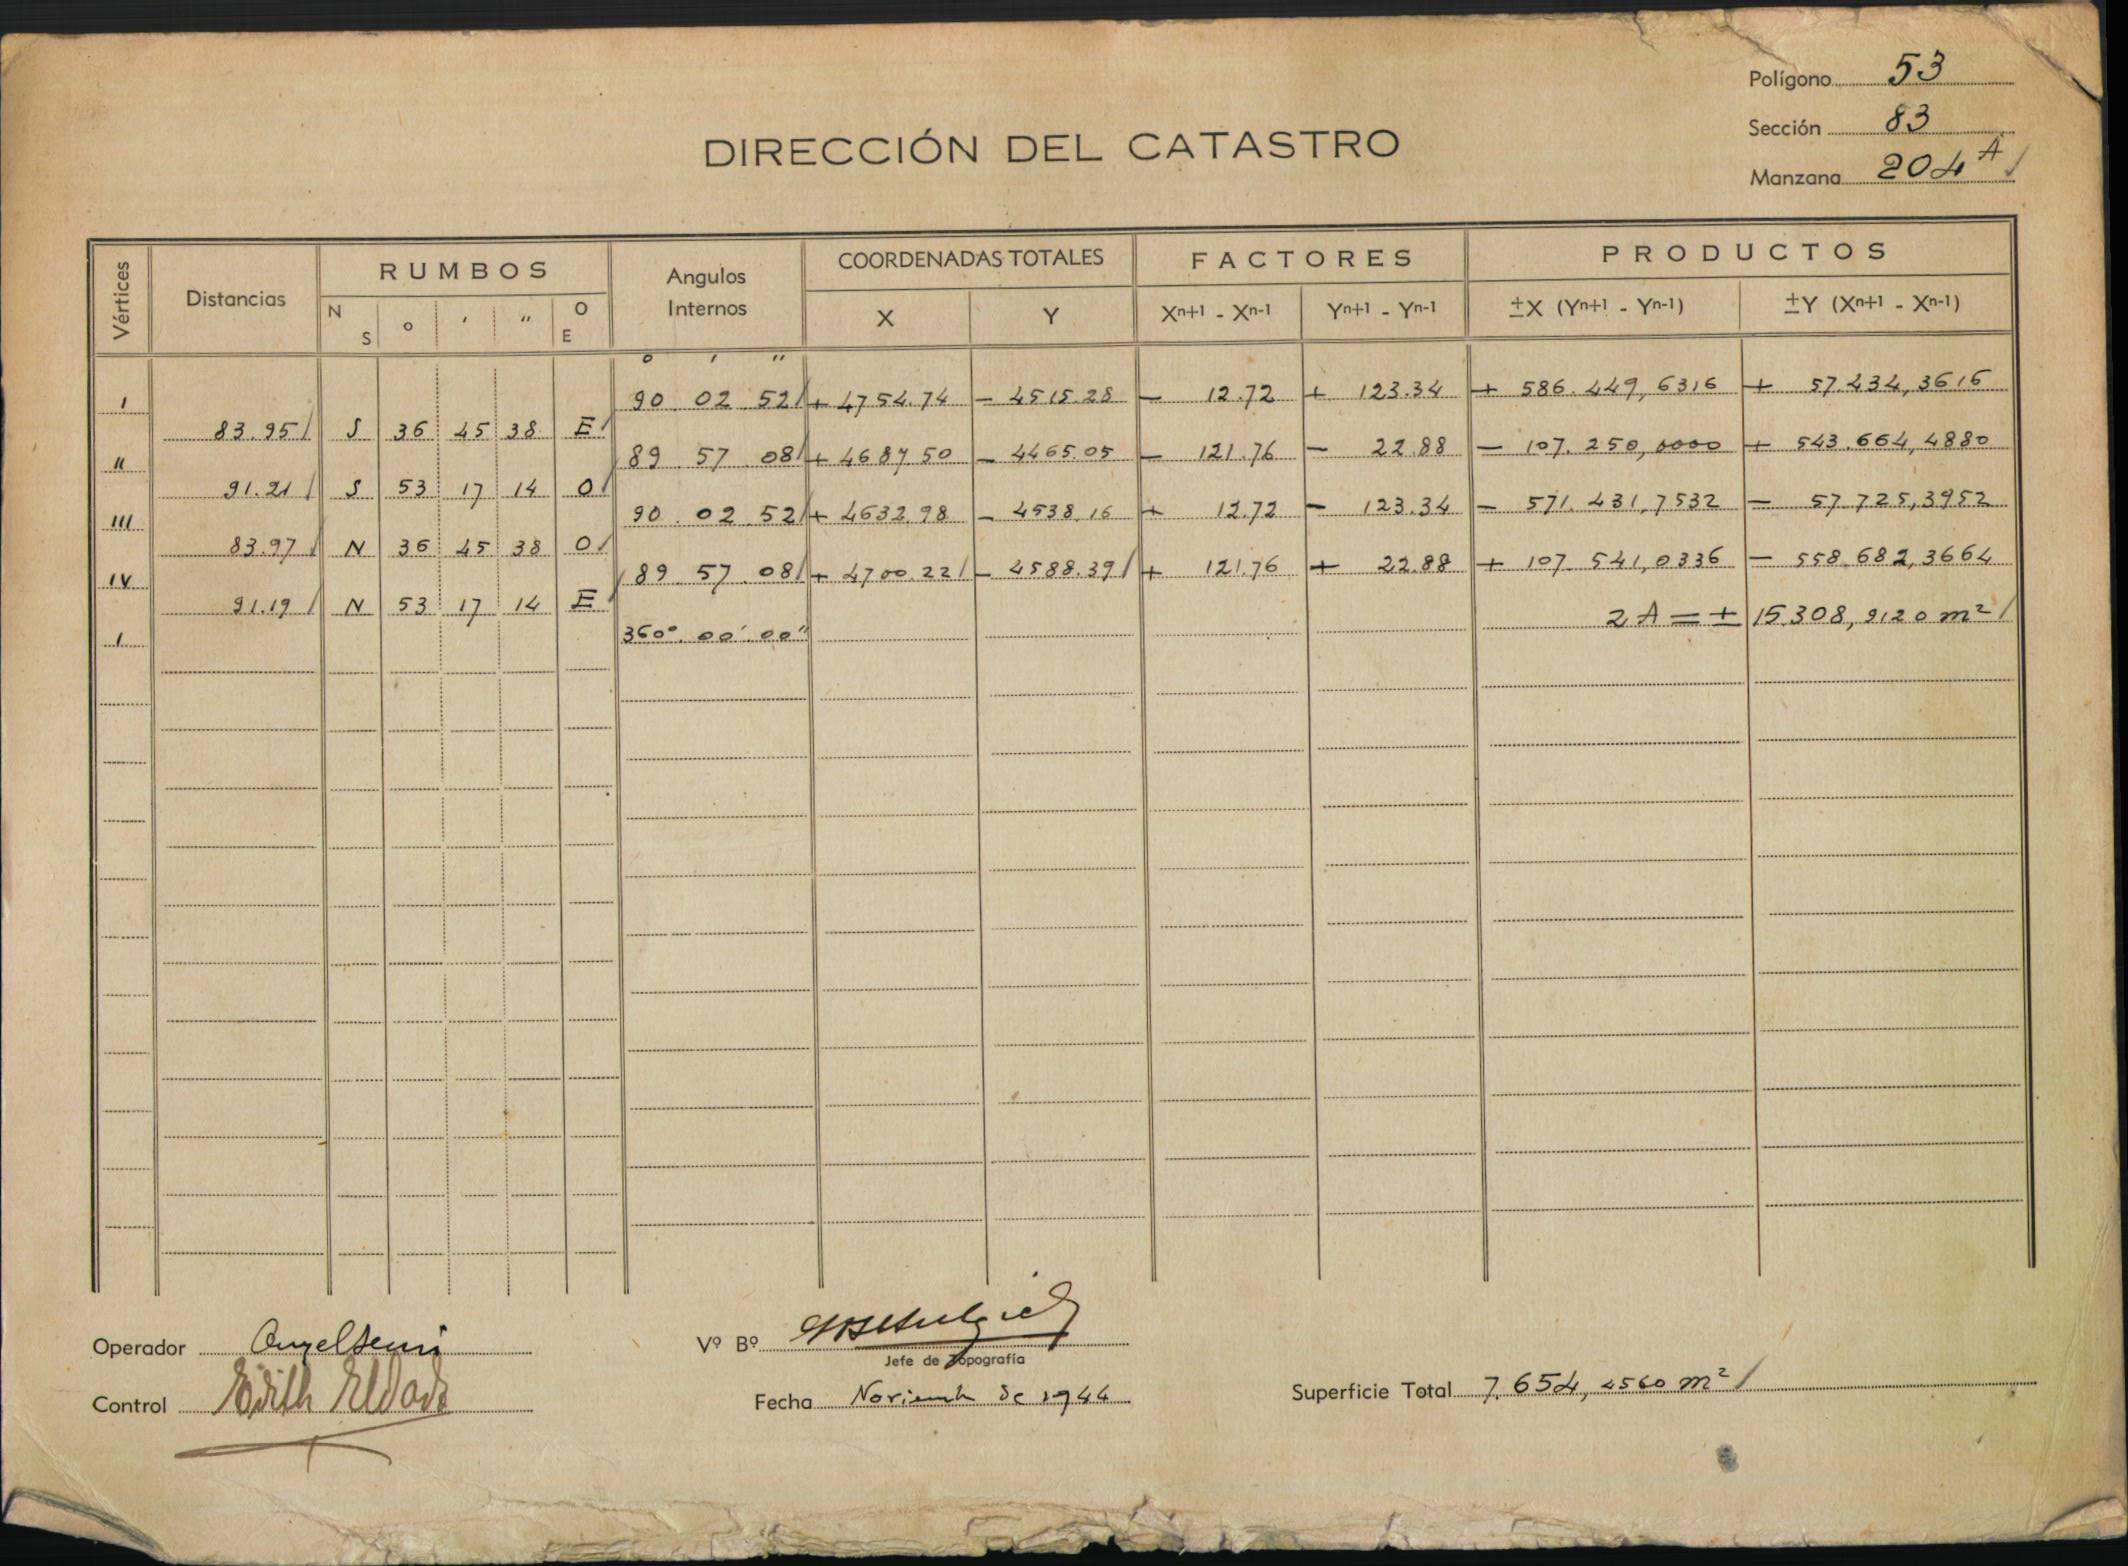 Polígono 53
Sección 83
DIRECCIÓN DEL CATASTRO
Manzana 204 A /
Vértices Distancias RUMBOS Angulos Internos COORDENADAS TOTALES FACTORES PRODUCTOS
N S o ' " O E X Y Xn+1 - Xn-1 Yn+1 - Yn-1 ±X (Yn+1 - Yn-1) ±Y (Xn+1 - Xn-1)
o ' "
I 90 02 52/ + 4754.74 - 4515.28 - 12.72 + 123.34 + 586.449,6316 + 57.434,3616
83.95/ S 36 45 38 E/
II 89 57 08/ + 4687.50 - 4465.05 - 121.76 - 22.88 - 107.250,0000 + 543.664,4880
91.21/ S 53 17 14 O/
III 90 02 52/ + 4632.98 - 4538.16 + 12.72 - 123.34 - 571.431,7532 - 57.725,3952
83.97/ N 36 45 38 O/
IV 89 57 08/ + 4700.22/ - 4588.39/ + 121.76 + 22.88 + 107.541,0336 - 558.682,3664
91.19/ N 53 17 14 E/
2A = ± 15.308,9120 m²/
I 360° 00' 00"
Operador
Vº Bº
Jefe de Topografía
Control Edith
Fecha Noviembre de 1944
Superficie Total 7.654,4560 m²/